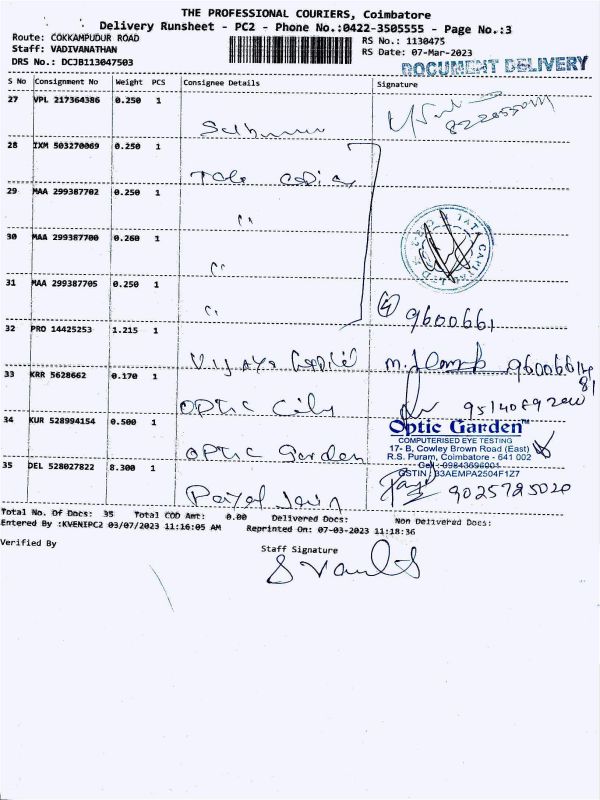 THE PROFESSIONAL COURIERS, Coimbatore
Delivery Runsheet - PC2 - Phone No.:0422-3505555 - Page No.:3
Route: COKKAMPUDUR ROAD
Staff: VADIVANATHAN
DRS No.: DCJB113047503
RS No.: 1130475
RS Date: 07-Mar-2023
DOCUMENT DELIVERY
S No Consignment No Weight PCS Consignee Details Signature
27 VPL 217364386 0.250 1
28 IXM 503270069 0.250 1
29 MAA 299387702 0.250 1 "
30 MAA 299387700 0.260 1 "
31 MAA 299387705 0.250 1 "
④ 9600661
32 PRO 14425253 1.215 1 Vijaya
33 KRR 5628662 0.170 1 Optic City
34 KUR 528994154 0.500 1 Optic Garden
Optic Garden™
COMPUTERISED EYE TESTING
17- B, Cowley Brown Road (East)
R.S. Puram, Coimbatore - 641 002
Cell : 09843696001
GSTIN : 33AEMPA2504F1Z7
35 DEL 528027822 8.300 1 Payal 9025725020
Total No. Of Docs: 35 Total COD Amt: 0.00 Delivered Docs: Non Delivered Docs:
Entered By :KVENIPC2 03/07/2023 11:16:05 AM Reprinted On: 07-03-2023 11:18:36
Verified By
Staff Signature